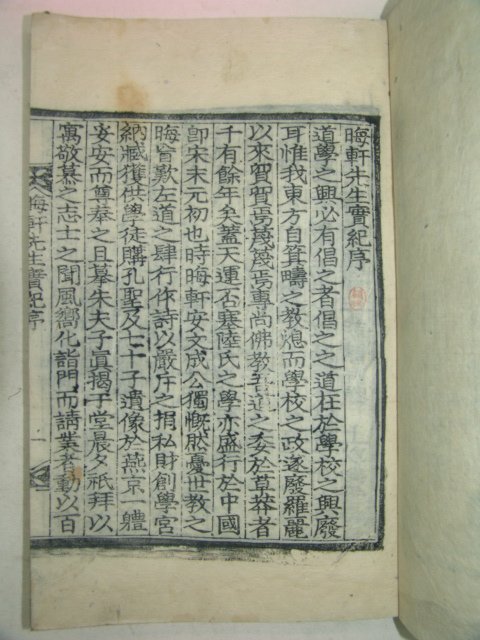 晦軒先生實紀序
道學之興必有倡之者倡之之道在於學校之興廢
耳惟我東方自箕疇之教熄而學校之政遂廢羅麗
以來貿貿焉蔑蔑焉專尚佛教吾道之委於草莽者
千有餘年矣蓋天運否塞陸氏之學亦盛行於中國
卽宋末元初也時晦軒安文成公獨慨然憂世教之
晦盲歎左道之肆行作詩以嚴斥之捐私財創學宮
納臧獲世學徒購孔聖及七十子遺像於燕京一軆
妥安而尊奉之且摹朱夫子眞揭于堂晨夕祗拜以
寓敬慕之志士之聞風嚮化詣門而請業者動以百
晦軒先生實紀序 一